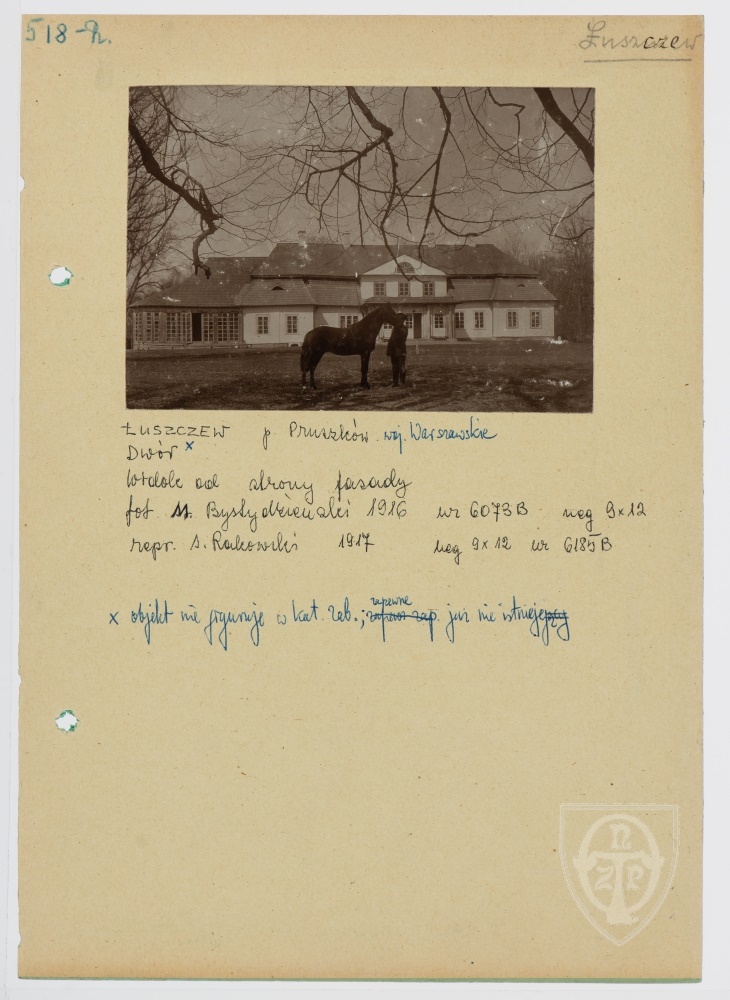 518-R.
Łuszczew
ŁUSZCZEW p. Pruszków woj. Warszawskie
Dwór x
Widok od strony fasady
fot. St. Bystydzieński 1916 nr 6073B neg 9x12
repr. S. Rakowski 1917 neg 9x12 nr 6185B
x objekt nie figuruje w kat. zab.; zapewne już nie istnieje
TONZP